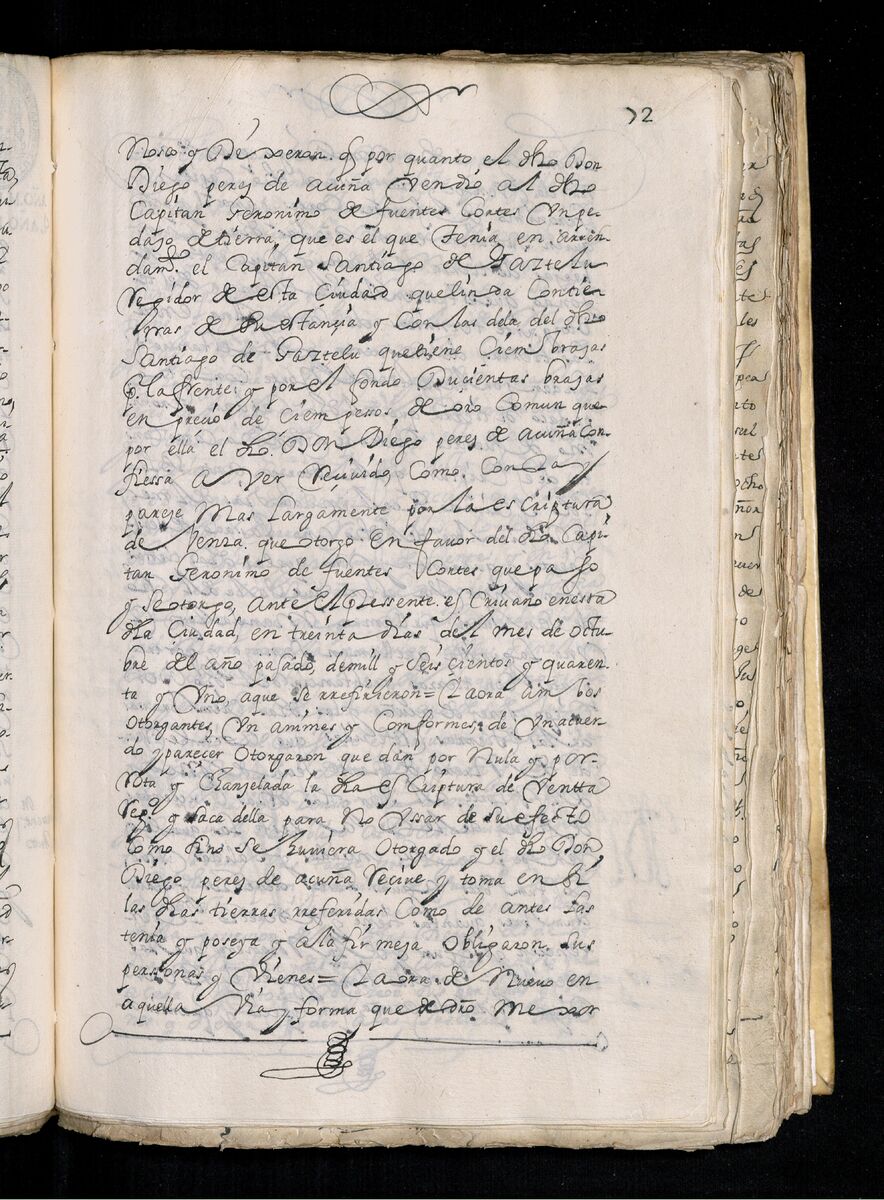 72
nosco y Dixeron. q̃ por quanto el dho Don
Diego peres de acuña Vendio al dho
Capitan Geronimo de fuentes Cortes Un pe-
daso de tierra, que es el que Tenia en arren-
damto. el Capitan Santiago de Gaztelu
Regidor de esta Ciudad que linda Con tie-
rras de su estançia y Con las de la del dho
Santiago de Gaztelu que tiene Cien brasas
p. la frente y por el fondo Ducientas brasas
en precio de cien pessos de oro Comun que
por ella el dho. Don Diego peres de acuña Con-
fiessa aver Recivido, Como. Consta y
pareje Mas Largamente por la escriptura
de Venta. que otorgo en favor del dho Capi-
tan Geronimo de fuentes Cortes que paso
y se otorgo, ante el pressente. escrivano en esta
dha Ciudad, en treinta dias del mes de octu-
bre del año pasado, de mill y seis cientos y quaren-
ta y Uno, a que se rrefirieron = Y aora ambos
otorgantes, Un animes y Comformes. de Un acuer-
do y parecer otorgaron que dan por Nula y por
Rota y Chanselada la dha escriptura de Ventta
Repo y saca della para No Ussar de su efecto
Como si no se huviera otorgado y el dho Don
Diego peres de acuña Reçive y toma en si
las dhas tierras rreferidas Como de antes las
tenia y poseya y a la firmeja obligaron sus
personas y vienes = Y aora de Nuevo en
aquella via y forma que de dro. Mexor